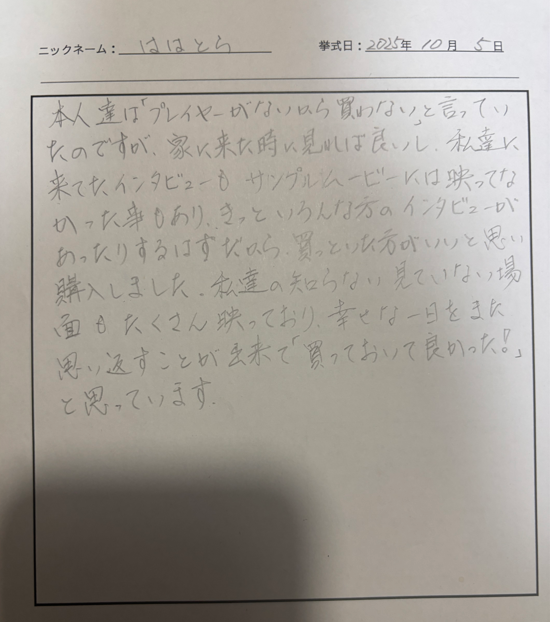 ニックネーム： ははとら 挙式日：2025年 10月 5日
本人達は「プレイヤーがないから買わない」と言ってい
たのですが、家に来た時に見れば良いし、私達に
来てたインタビューも サンプルムービーには映ってな
かった事もあり、きっといろんな方のインタビューが
あったりするはずだから、買っといた方がいいと思い
購入しました。私達の知らない見ていない場
面もたくさん映っており、幸せな一日をまた
思い返すことが出来て「買っておいて良かった!」
と思っています。